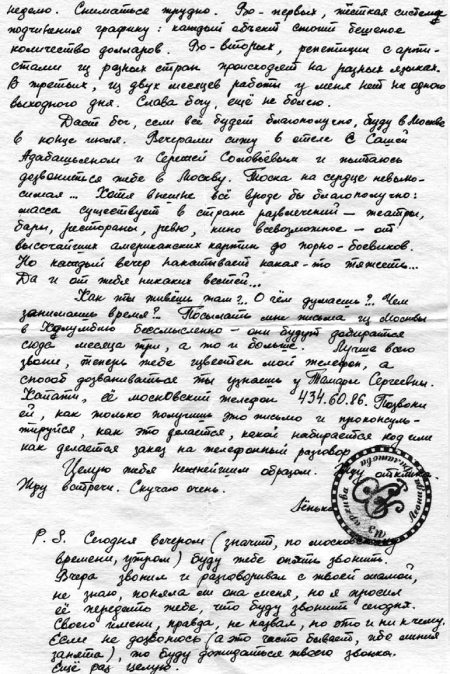 неделю. Сниматься трудно. Во-первых, жёсткая система
подчинения графику: каждый объект стоит бешеное
количество долларов. Во-вторых, репетиции с арти-
стами из разных стран происходят на разных языках.
В третьих, из двух месяцев работы у меня нет ни одного
выходного дня. Слава богу, ещё не болею.
Даст бог, если всё будет благополучно, буду в Москве
в конце июля. Вечерами сижу в отеле с Сашей
Адабашьяном и Сергеей Соловьёвым и пытаюсь
дозвониться тебе в Москву. Тоска на сердце невыно-
симая... Хотя внешне всё вроде бы благополучно:
масса существует в стране развлечений — театры,
бары, рестораны, ревю, кино всевозможное — от
высочайших американских картин до порно-боевиков.
Но каждый вечер накатывает какая-то тяжесть...
Да и от тебя никаких вестей...
Как ты живёшь там?.. О чём думаешь?.. Чем
занимаешь время?.. Посылать мне письма из Москвы
в Колумбию бессмысленно — они будут добираться
сюда месяца три, а то и больше. Лучше всего
звони, теперь тебе известен мой телефон, а
способ дозваниваться ты узнаешь у Тамары Сергеевны.
Кстати, её московский телефон 434.60.86. Позвони
ей, как только получишь это письмо и проконсуль-
тируйся, как это делается, какой набирается код или
как делается заказ на телефонный разговор
Целую тебя нежнейшим образом. Жду
Жду встречи. Скучаю очень.
Лёнька
P.S. Сегодня вечером (значит, по московскому
времени, утром) буду тебе опять звонить.
Вчера звонил и разговаривал с твоей мамой,
не знаю, поняла ли она меня, но я просил
её передать тебе, что буду звонить сегодня.
Своего имени, правда, не назвал, но это и ни к чему.
Если не дозвонюсь (а это часто бывает, ибо линия
занята), то буду дожидаться твоего звонка.
Ещё раз целую.